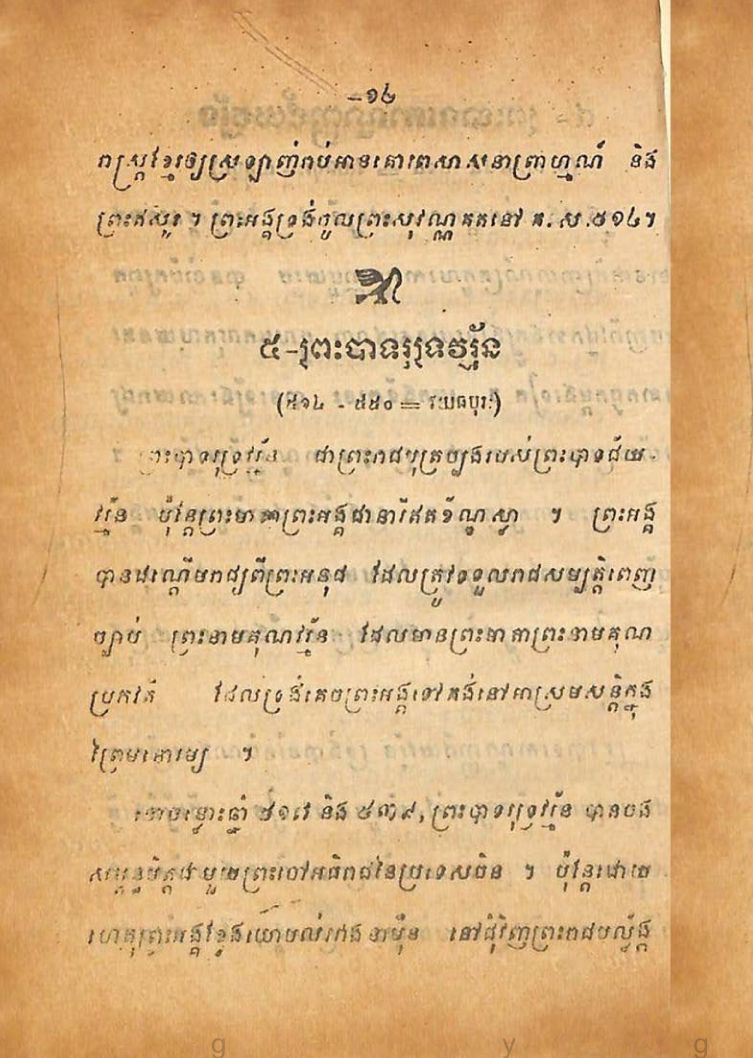 -១៤
រាស្ត្រខ្មែរឲ្យស្រឡាញ់រាប់អានគោរពសាសនាព្រាហ្មណ៍ និង
ព្រះឥសូរ ។ ព្រះអង្គទ្រង់ចូលព្រះសុវណ្ណគតនៅ គ. ស.៥១៤។
៥-ព្រះបាទរុទ្រវរ្ម័ន
(៥១៤ - ៥៥០ = វ្យាធបុរៈ)
ព្រះបាទរុទ្រវរ្ម័ន ជាព្រះរាជបុត្រច្បងរបស់ព្រះបាទជ័យ-
វរ្ម័ន ប៉ុន្តែព្រះមាតាព្រះអង្គជានារីឥតខ័ណ្ឌស្លា ។ ព្រះអង្គ
បានដណ្ដើមរាជ្យពីព្រះអនុជ ដែលត្រូវទទួលរាជសម្បត្តិពេញ
ច្បាប់ ព្រះនាមគុណវរ្ម័ន ដែលមានព្រះមាតាព្រះនាមគុណ
ប្រភវតី ដែលទ្រង់គេចព្រះអង្គទៅគង់នៅអាស្រមសន្តិក្នុង
ព្រៃមគោរម្យ ។
នៅចន្លោះឆ្នាំ ៥១៧ និង ៥៣៩, ព្រះបាទរុទ្រវរ្ម័ន បានចង
សម្ពន្ធមិត្តជាមួយព្រះចៅអធិរាជនៃប្រទេសចិន ។ ប៉ុន្តែដោយ
ហេតុព្រះអង្គខ្វែងយោបល់រាំង នាម៉ឺន នៅជុំវិញព្រះរាជបល្ល័ង្ក
g y g